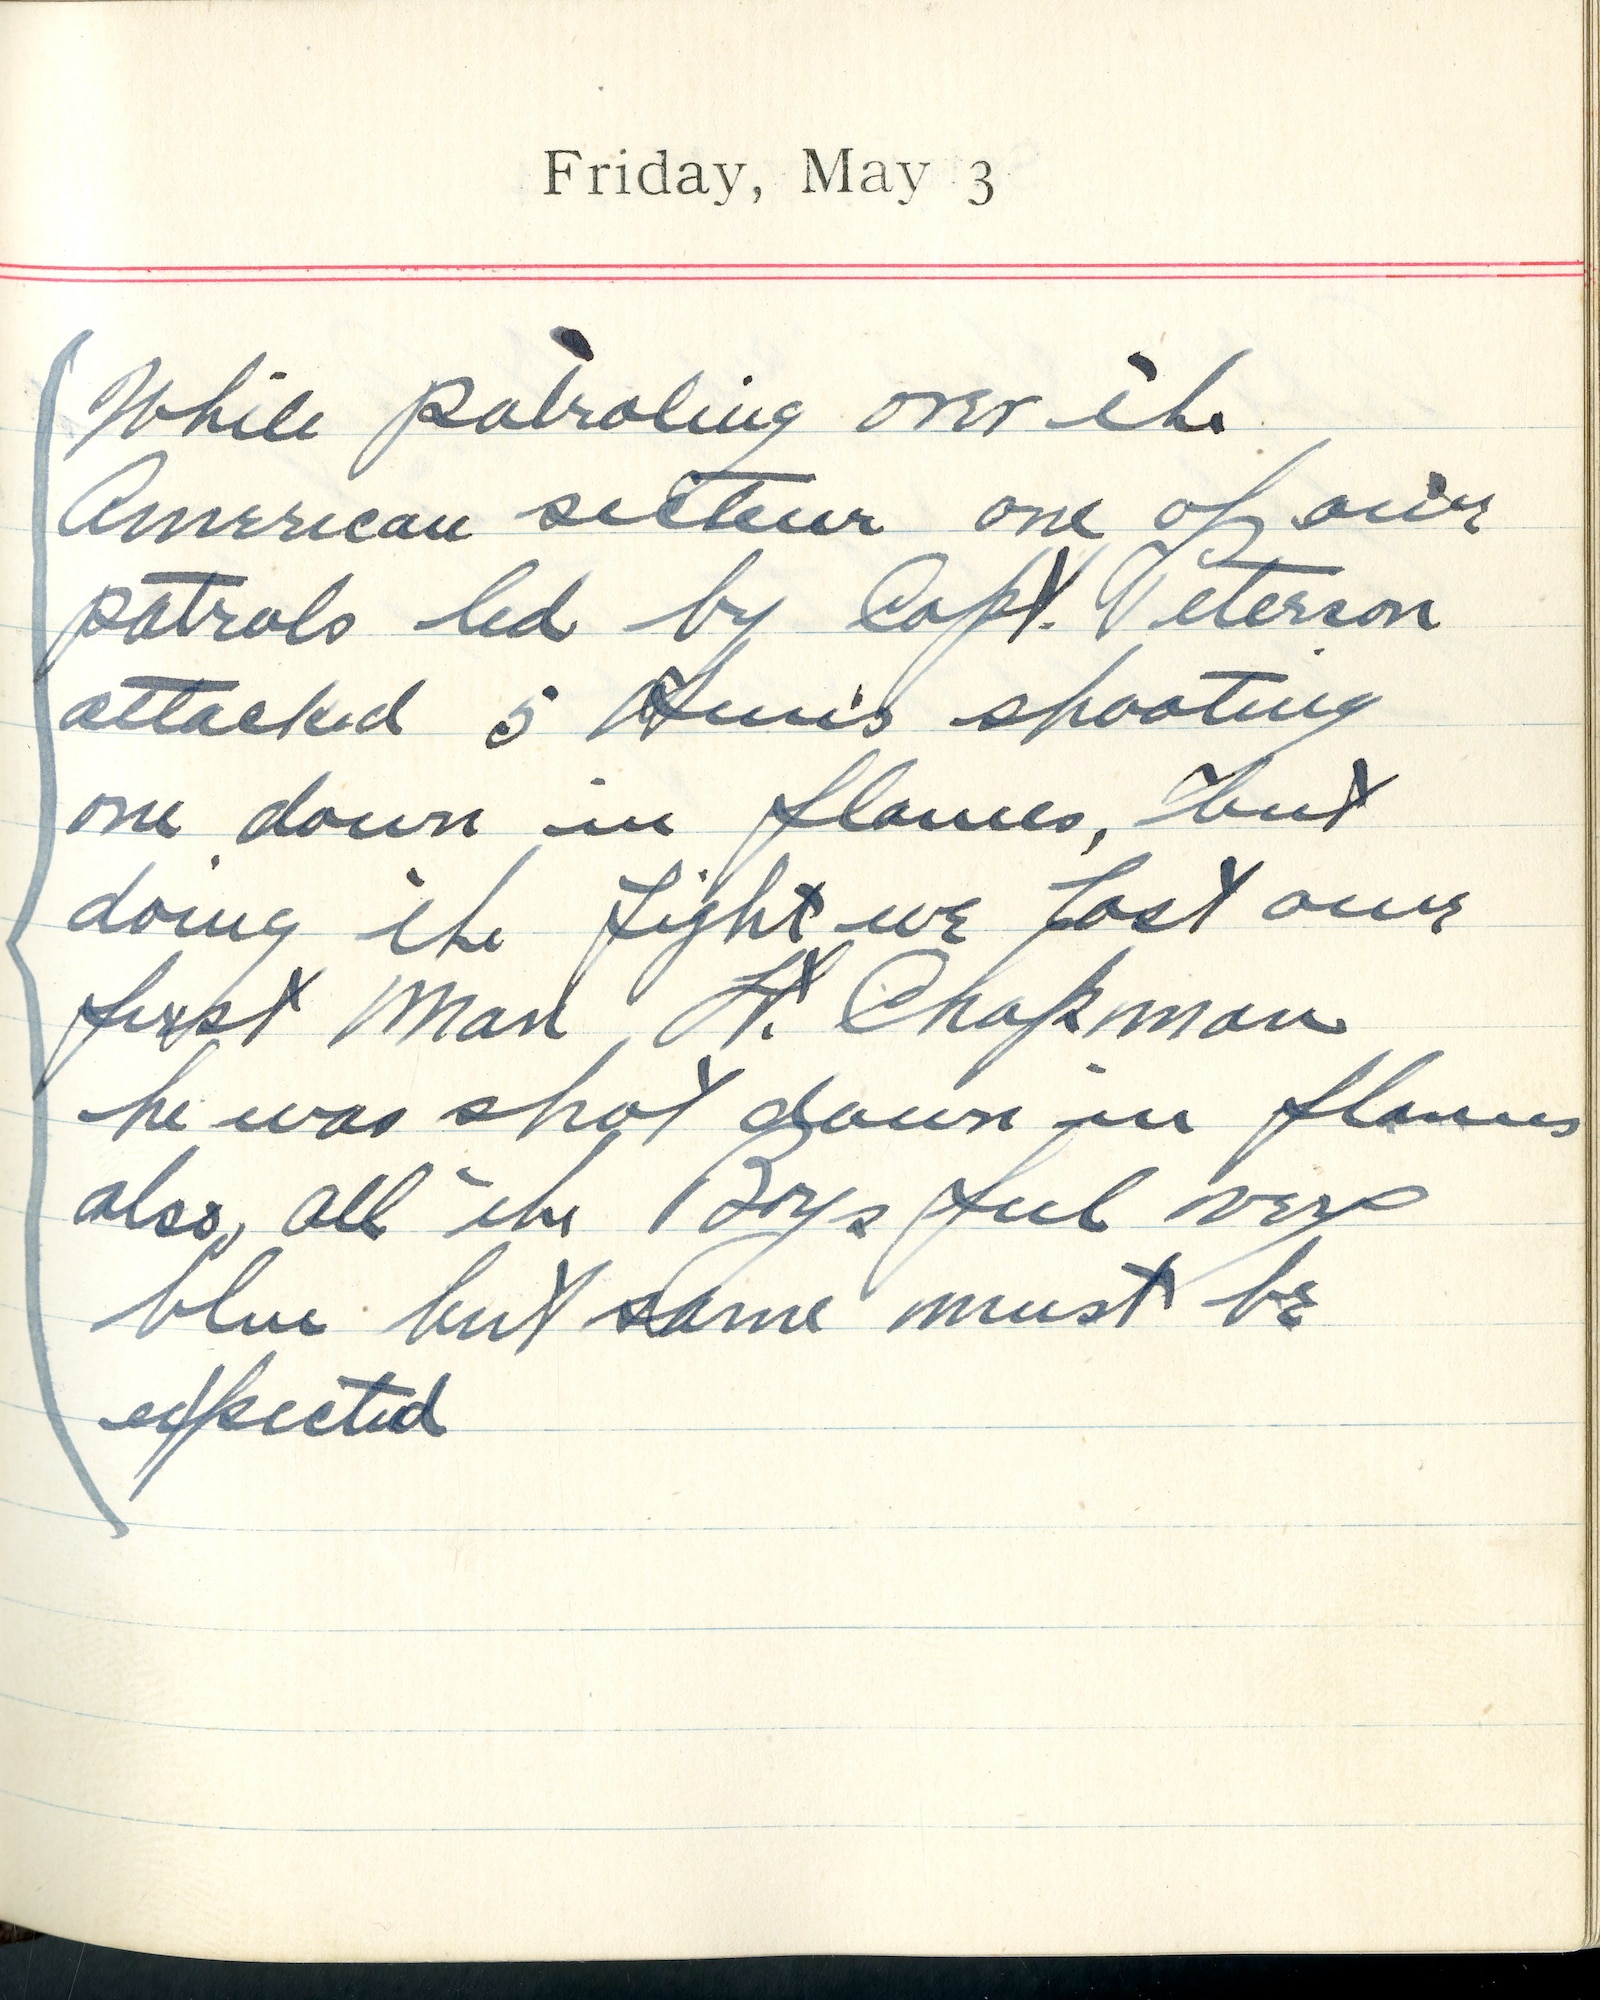 Friday, May 3
While patroling over the
American secteur one of our
patrols led by Capt. Peterson
attacked 5 Huns shooting
one down in flames, but
doing the fight we lost our
first Man Lt. Chapman
he was shot down in flames
also, all the Boys feel very
blue but same must be
expected